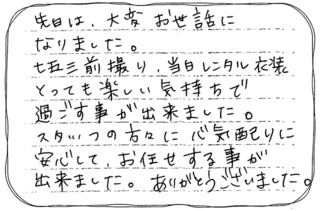 先日は、大変お世話に
なりました。
七五三前撮り、当日レンタル衣装
とっても楽しい気持ちで
過ごす事が出来ました。
スタッフの方々に心気配りに
安心して、お任せする事が
出来ました。ありがとうございました。